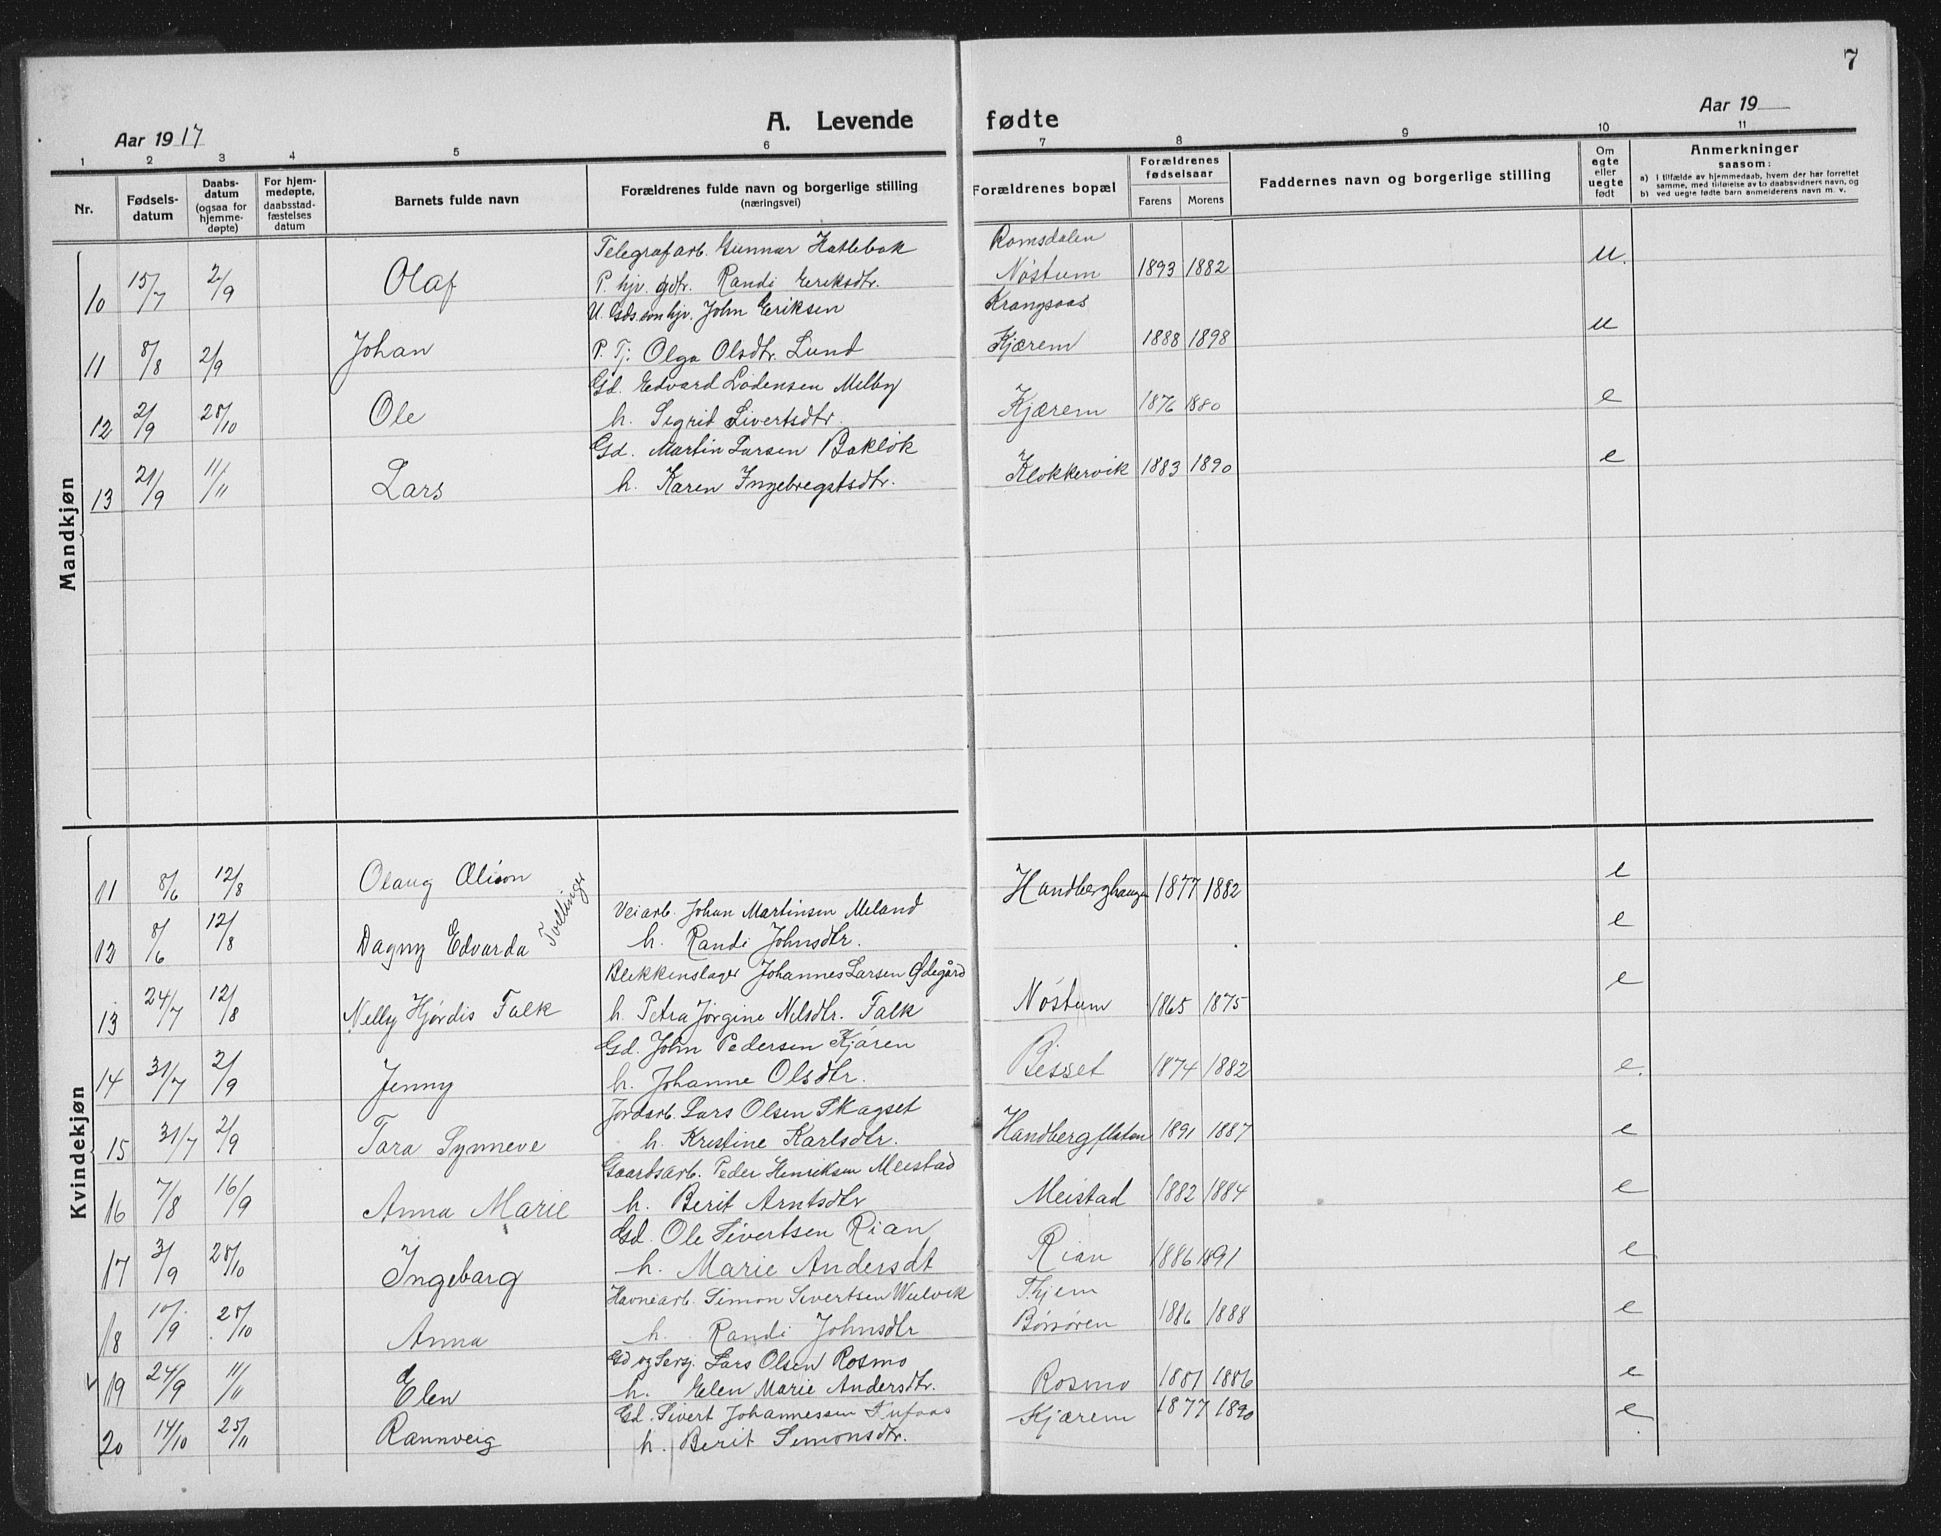 7
Aar 1917 A. Levende fødte Aar 19
1 2 3 4 5 6 7 8 9 10 11
Nr. Fødsels-datum Daabs-datum (ogsaa for hjemme-døpte) For hjem-medøpte, daabsstad-fæstelses datum Barnets fulde navn Forældrenes fulde navn og borgerlige stilling (næringsvei) Forældrenes bopæl Forældrenes fødselsaar Farens Morens Faddernes navn og borgerlige stilling Om egte eller uegte født Anmerkninger saasom:
a) i tilfælde av hjemmedaab, hvem der har forrettet samme, med tilføielse av to daabsvidners navn, og
b) ved uegte fødte barn anmelderens navn m. v.
Mandkjøn
Telegrafarb. Gunnar Hatlebak Romsdalen
10 15/7 2/9 Olaf P. hjv. gdtr. Randi Eriksdtr. Nøstum 1893 1882 u.
U. Gds.søn hjv. John Eriksen Krangsaas
11 8/8 2/9 Johan P. Tj. Olga Olsdtr. Lund Kjærem 1888 1898 u
Gd. Edvard Lodensen Melby
12 2/9 28/10 Ole h. Sigrid Sivertsdtr. Kjærem 1876 1880 e
Gd. Martin Larsen Bakløk
13 21/9 11/11 Lars h. Karen Ingebregtsdtr. Klokkervik 1883 1890 e
Kvindekjøn
11 8/6 12/8 Olaug Alison Tvillinger Handberghaugen 1877 1882 e
Veiarb. Johan Martinsen Meland
12 8/6 12/8 Dagny Edvarda h. Randi Johnsdtr. e
Blikkenslager Johannes Larsen Ødegård
13 24/7 12/8 Nelly Hjørdis Falk h. Petra Jørgine Nilsdtr. Falk Nøstum 1865 1875 e
Gd. John Pedersen Kjøren
14 31/7 2/9 Jenny h. Johanne Olsdtr. Besset 1874 1882 e.
Jordarb. Lars Olsen Skagset
15 31/7 2/9 Tara Synneve h. Kristine Karlsdtr. Handbergflaten 1891 1887 e
Gaardsarb. Peder Henriksen Meistad
16 7/8 16/9 Anna Marie h. Berit Arntsdtr Meistad 1882 1884 e
Gd. Ole Sivertsen Rian
17 3/9 28/10 Ingebarg h. Marie Andersdt Rian 1886 1891 e
Havnearb. Simon Sivertsen Weelvik
18 10/9 28/10 Anna h. Randi Johnsdtr Børsøren 1886 1888 e
Gd og Serg. Lars Olsen Rosmo
19 24/9 11/11 Elen h. Elen Marie Andersdtr. Rosmo 1881 1886 e
Gd. Sivert Johannessen
20 14/10 25/11 Rannveig h. Berit Simonsdtr. Kjærem 1877 1890 e